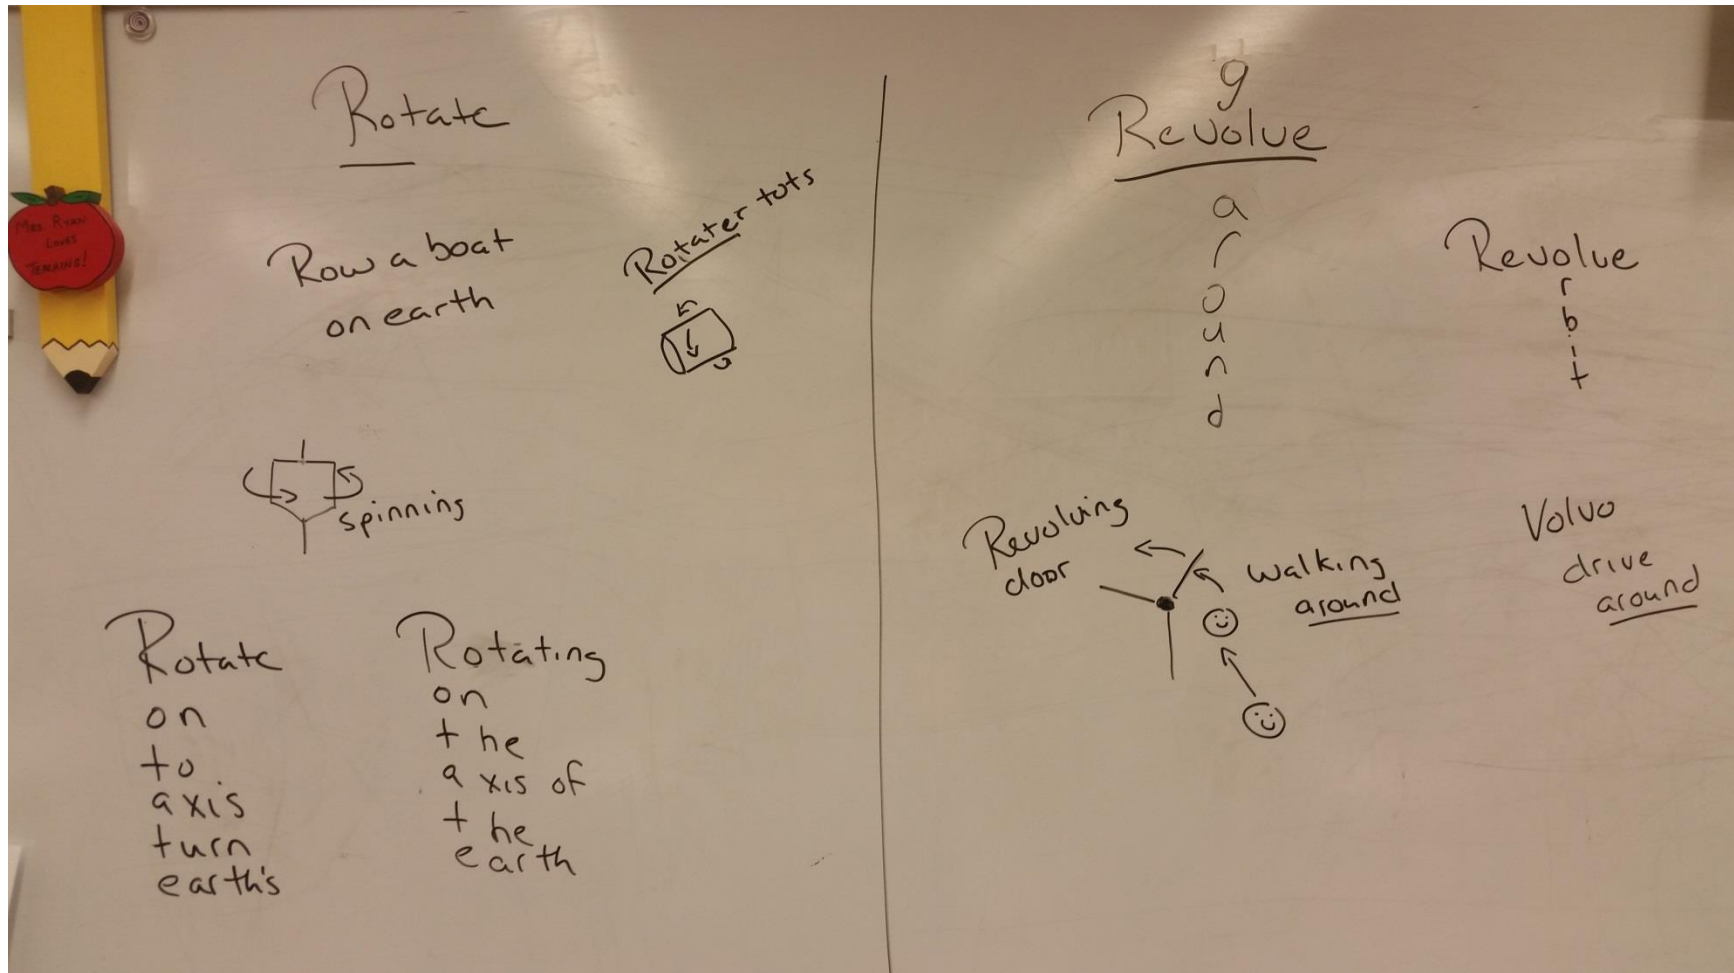 MRS. RYAN
LOVES
TEACHING!
Rotate
Row a boat
on earth
Rotater tots
spinning
Rotate
on
to
axis
turn
earth's
Rotating
on
the
axis of
the
earth
g
Revolve
a
r
o
u
n
d
Revolve
r
b
i
t
Revolving
door
walking
around
Volvo
drive
around